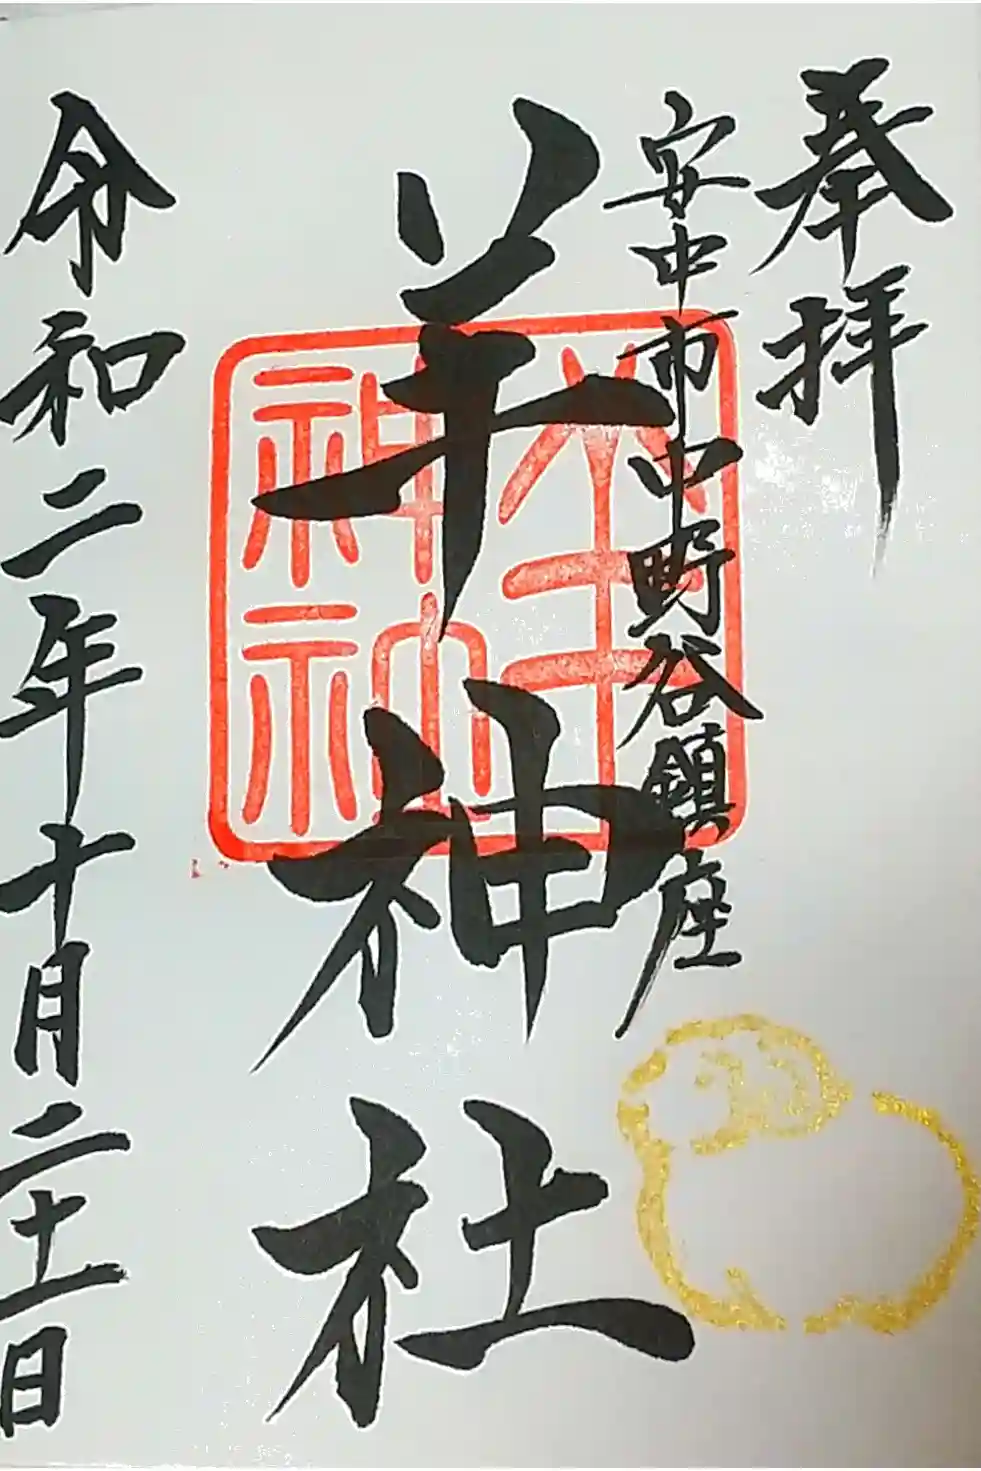 奉拝
安中市中野谷鎮座
羊神社
令和二年十月二十一日